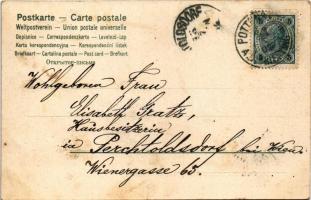 Postkarte - Carte postale
Weltpostverein - Union postale universelle
Dopisnice - Correspondenzkarte - Levelezö-Lap
Karta korespondencyjna - Korespondenční lístek
Briefkaart - Cartolina postale - Post card - Brefkort
Открытое письмо
Wohlgeboren Frau
Elisabeth Gratz,
Hausbesitzerin
in Perchtoldsdorf bei Wien.
Wienergasse 63.